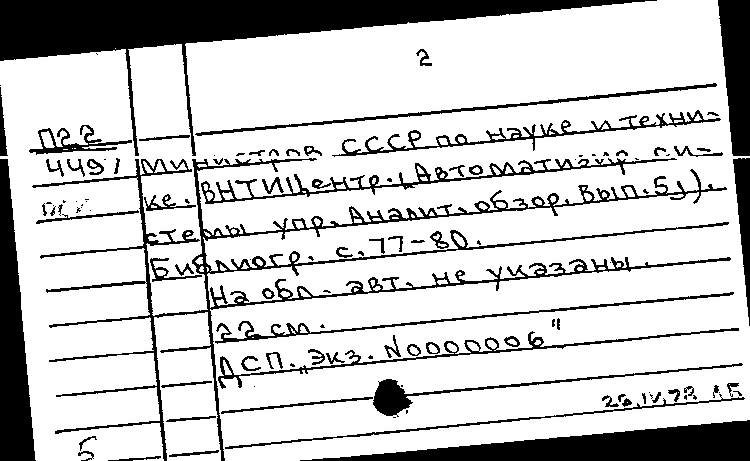 2
П22
4491
Министров СССР по науке и техни-
ке. ВНТИЦентр. (Автоматизир. си-
стемы упр. Аналит. обзор. Вып. 5)).
Библиогр. с. 77-80.
На обл. авт. не указаны.
22 см.
ДСП. „Экз. N0000006"
5